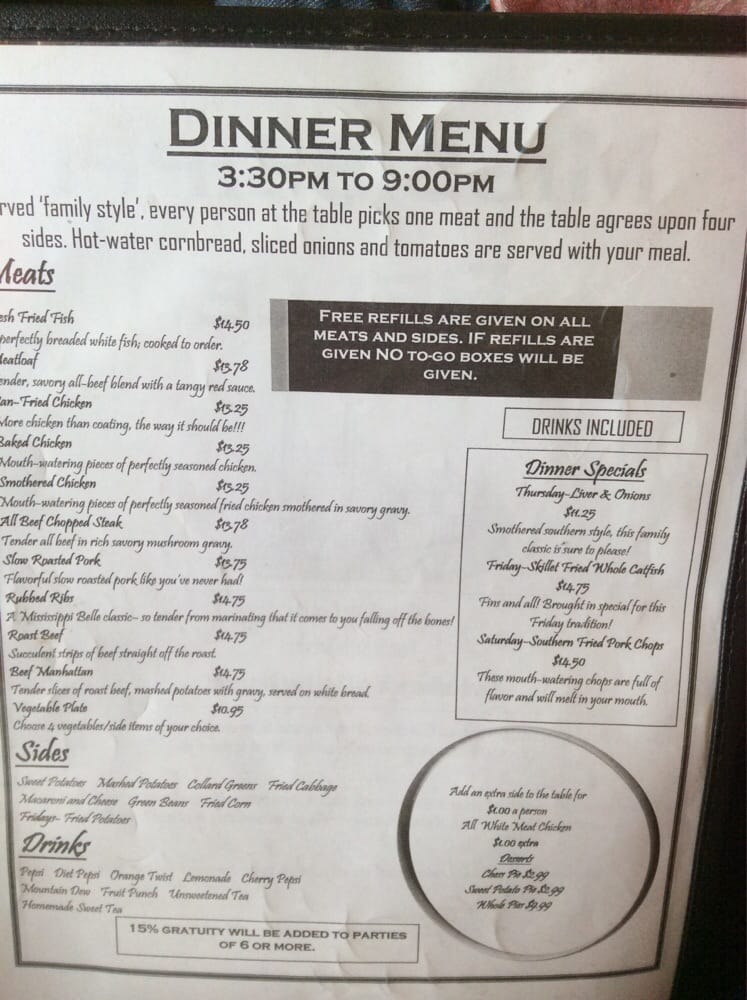 DINNER MENU
3:30PM TO 9:00PM
rved 'family style', every person at the table picks one meat and the table agrees upon four
sides. Hot-water cornbread, sliced onions and tomatoes are served with your meal.
Meats
esh Fried Fish $14.50
perfectly breaded white fish; cooked to order.
Meatloaf $13.78
ender, savory all-beef blend with a tangy red sauce.
an-Fried Chicken $13.25
More chicken than coating, the way it should be!!!
Baked Chicken $13.25
Mouth-watering pieces of perfectly seasoned chicken.
Smothered Chicken $13.25
Mouth-watering pieces of perfectly seasoned fried chicken smothered in savory gravy.
All Beef Chopped Steak $13.78
Tender all beef in rich savory mushroom gravy.
Slow Roasted Pork $13.75
Flavorful slow roasted pork like you've never had!
Rubbed Ribs $14.75
A Mississippi Belle classic- so tender from marinating that it comes to you falling off the bones!
Roast Beef $14.75
Succulent strips of beef straight off the roast.
Beef Manhattan $14.75
Tender slices of roast beef, mashed potatoes with gravy, served on white bread.
Vegetable Plate $10.95
Choose 4 vegetables/side items of your choice.
Sides
Sweet Potatoes Mashed Potatoes Collard Greens Fried Cabbage
Macaroni and Cheese Green Beans Fried Corn
Fridays- Fried Potatoes
Drinks
Pepsi Diet Pepsi Orange Twist Lemonade Cherry Pepsi
Mountain Dew Fruit Punch Unsweetened Tea
Homemade Sweet Tea
15% GRATUITY WILL BE ADDED TO PARTIES
OF 6 OR MORE.
FREE REFILLS ARE GIVEN ON ALL
MEATS AND SIDES. IF REFILLS ARE
GIVEN NO TO-GO BOXES WILL BE
GIVEN.
DRINKS INCLUDED
Dinner Specials
Thursday-Liver & Onions
$11.25
Smothered southern style, this family
classic is sure to please!
Friday-Skillet Fried Whole Catfish
$14.75
Fins and all! Brought in special for this
Friday tradition!
Saturday-Southern Fried Pork Chops
$14.50
These mouth-watering chops are full of
flavor and will melt in your mouth.
Add an extra side to the table for
$1.00 a person
All White Meat Chicken
$1.00 extra
Desserts
Chess Pie $2.99
Sweet Potato Pie $2.99
Whole Pies $9.99